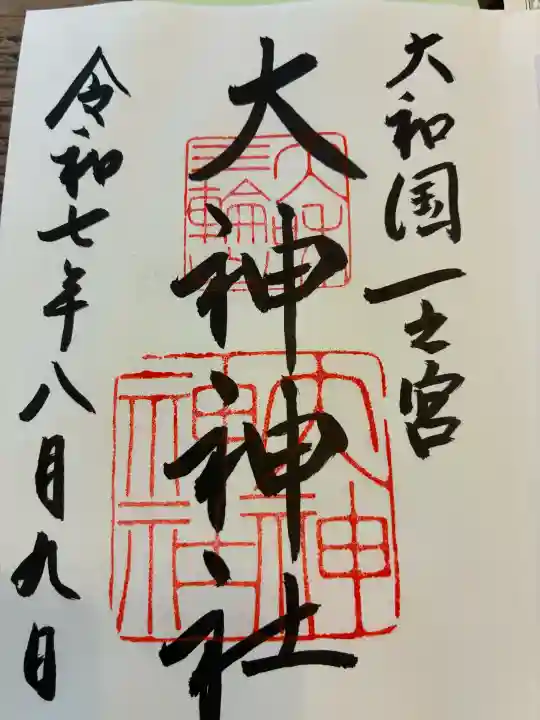 大和国一之宮
大神神社
令和七年八月九日
大神神社